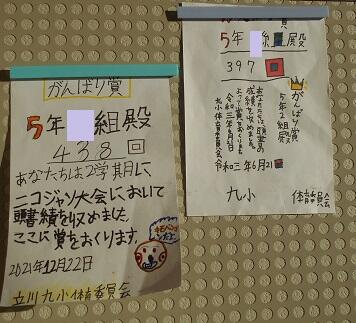 がんばり賞
5年 組殿
438回
あなたたちは2学期月に、
ニコジャン大会において
頭書績を収めました。
ここに賞をおくります。
2021年12月22日
立川九小体育委員会
5年 組殿
397回
がんばり賞
5年2組殿
あなたたちは頭書の
成績を収めました
よってここに賞をおくります
令和三年6月21日
九小体育委員会
令和三年6月21日
九小 体育委員会